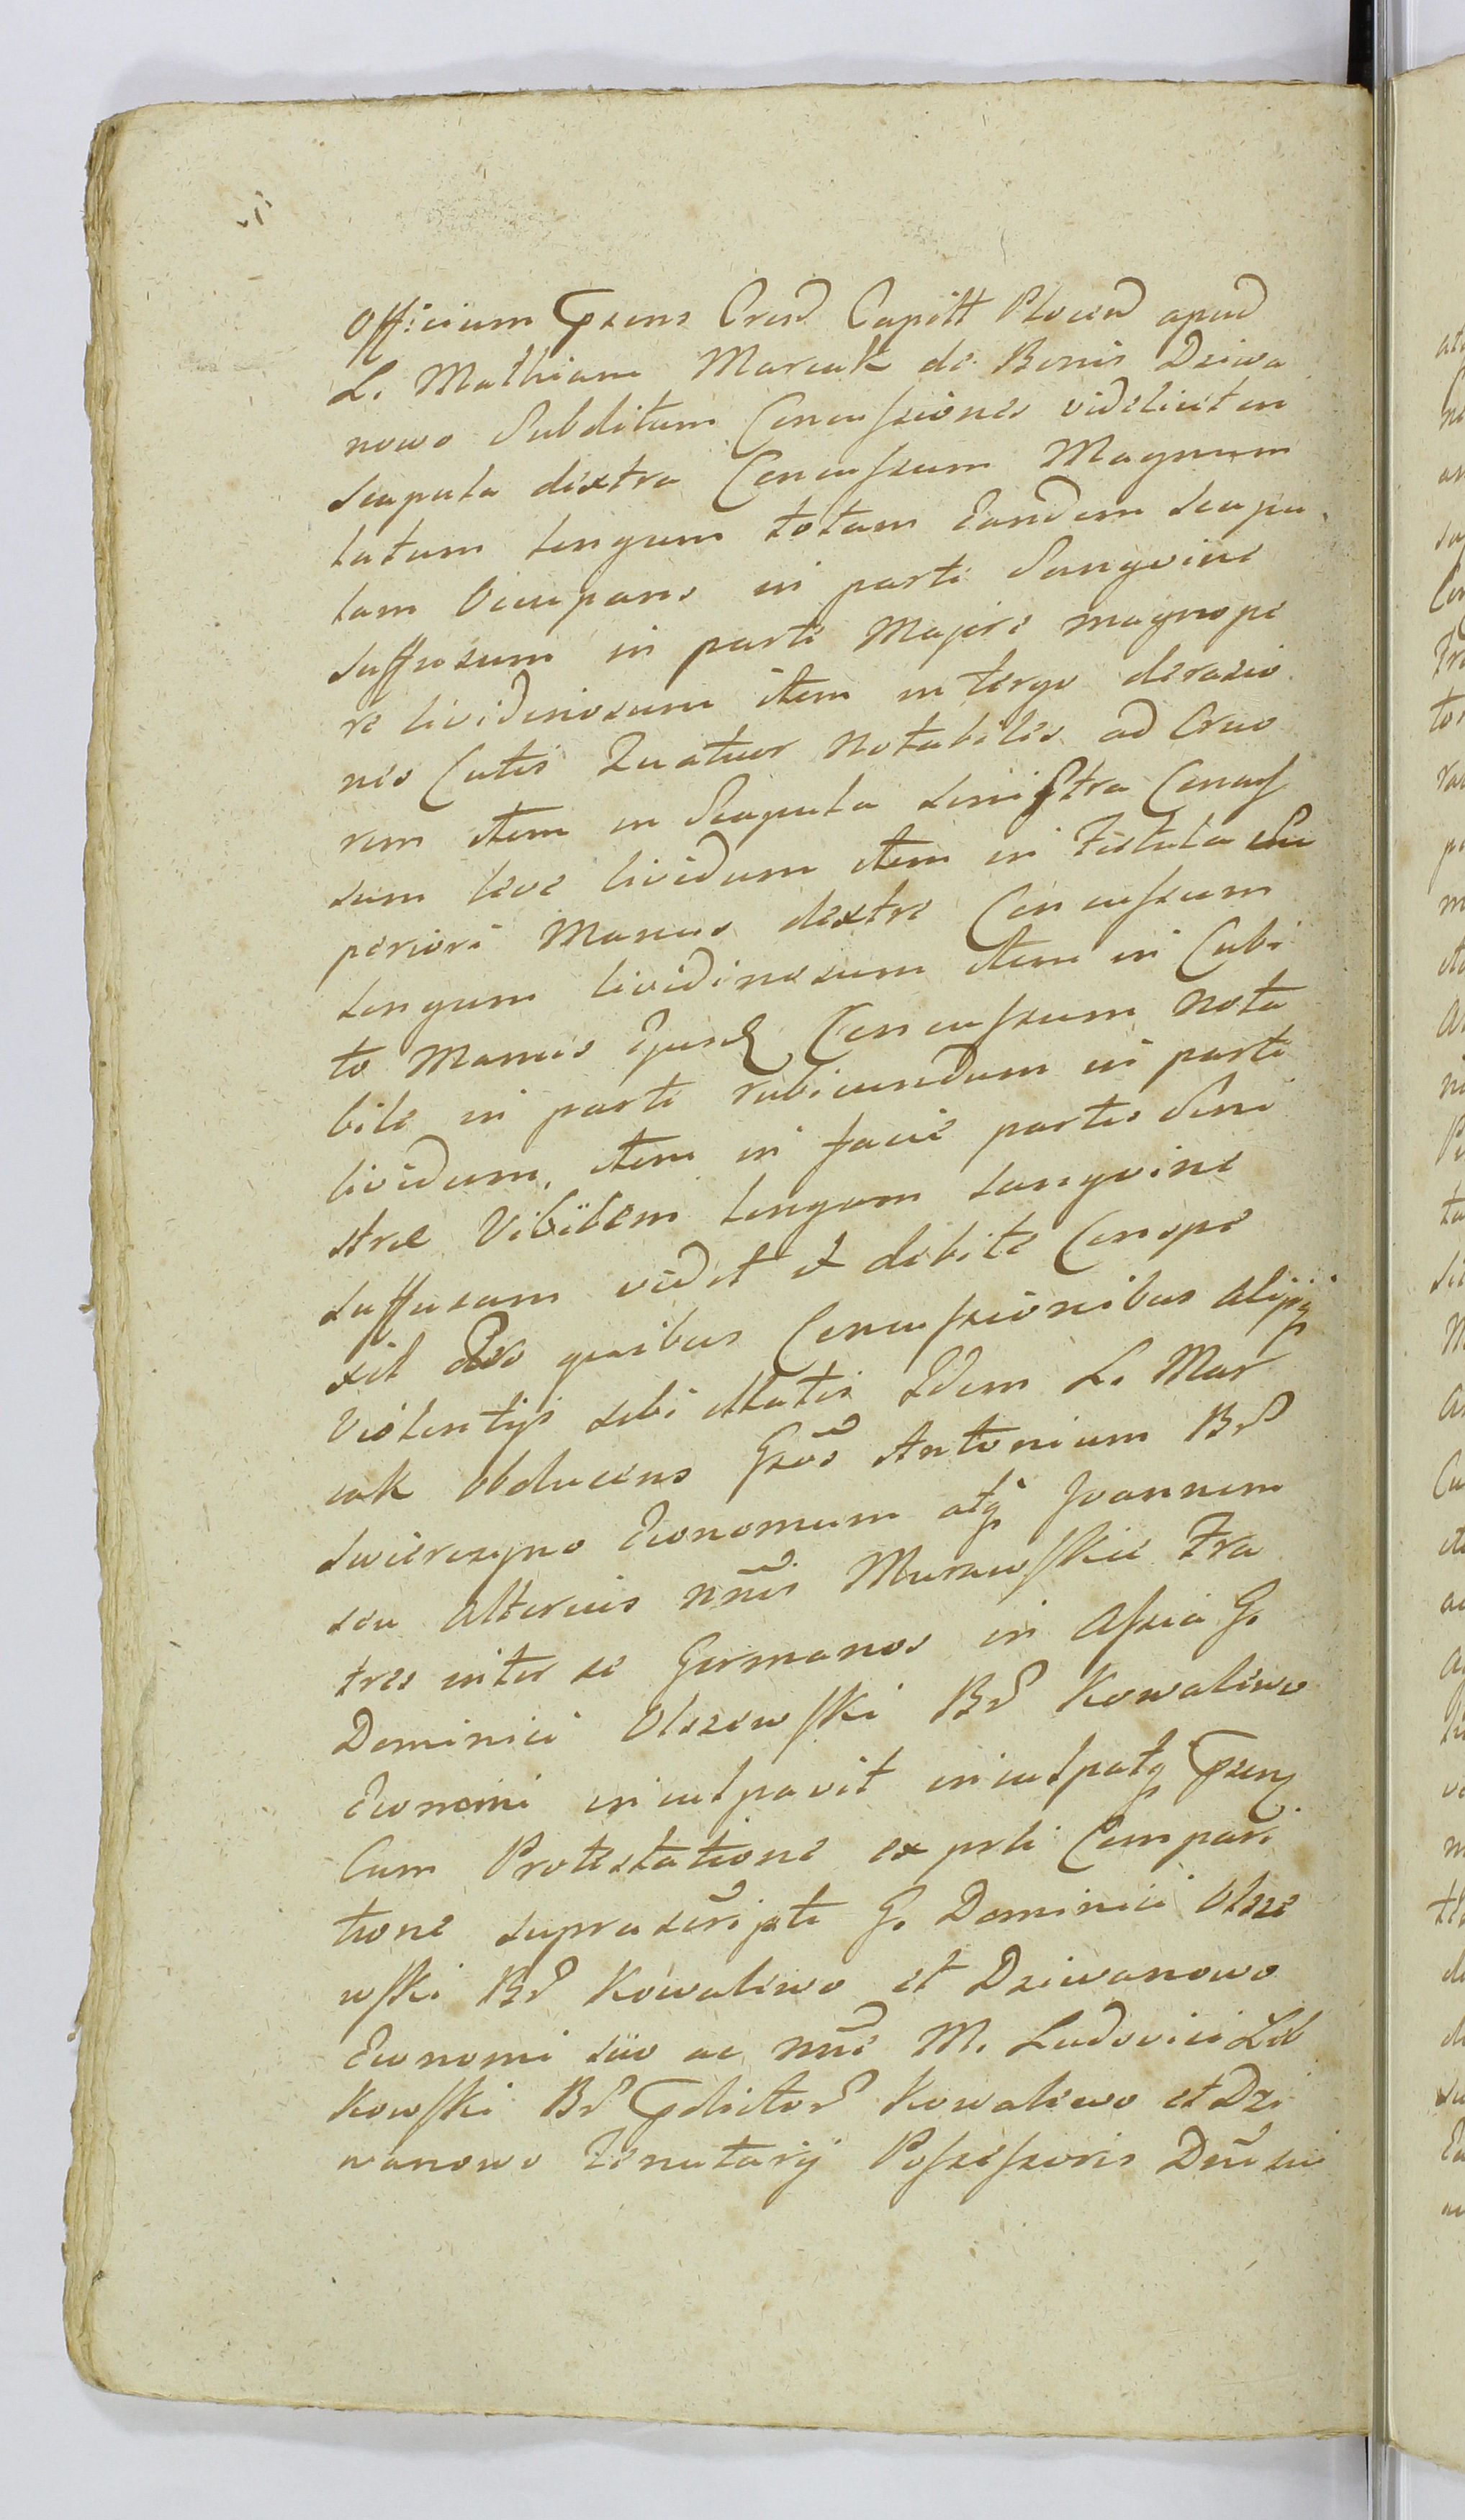 Officium Prsens Crsd Capitt Plocen apud
L. Mathiam Marcak de Bonis Dziwa
nowo Subditum Concussiones videlicet in
Scapula dextra Concussum Magnum
latum longum totam Eandem Scapu
lam Occupans in parte Sangvine
Suffusum in parte Majore magnope
re lividinosum item in tergo derasio
nes Cutis Quatuor notabiles ad Cruo
rem item in Scapula Sinistra Concus
sum leve lividum item in Fistula Su
periori Manus dextre Concussum
longum lividinosum item in Cubi
to Manus Ejusd Concussum nota
bile in parte rubicundum in parte
lividum, item in facie partis Sini
stre Vibicem longam sangvine
suffusam vidit et debite Conspe
xit de quibus Concussionibus alijsq
Violentijs sibi illatis Idem L. Mar
cak obducens Gsos Antonium Br
Swierczyno Economum atq Joannem
seu alterius nnis Murawskie Fra
tres inter se Germanos in assia G.
Dominici Olszewski Br Kowalewo
Economi inculpavit inculpatq Prsenz
Cum Protestatione ex prti Compari
tione suprascripti G. Dominici Olsze
wski Br Kowalewo et Dziwanowo
Economi suo ac nne M. Ludovici
kowski Br Pdictor Kowalewo et Dzi
wanowo Tenutarij Possessoris Dni sui